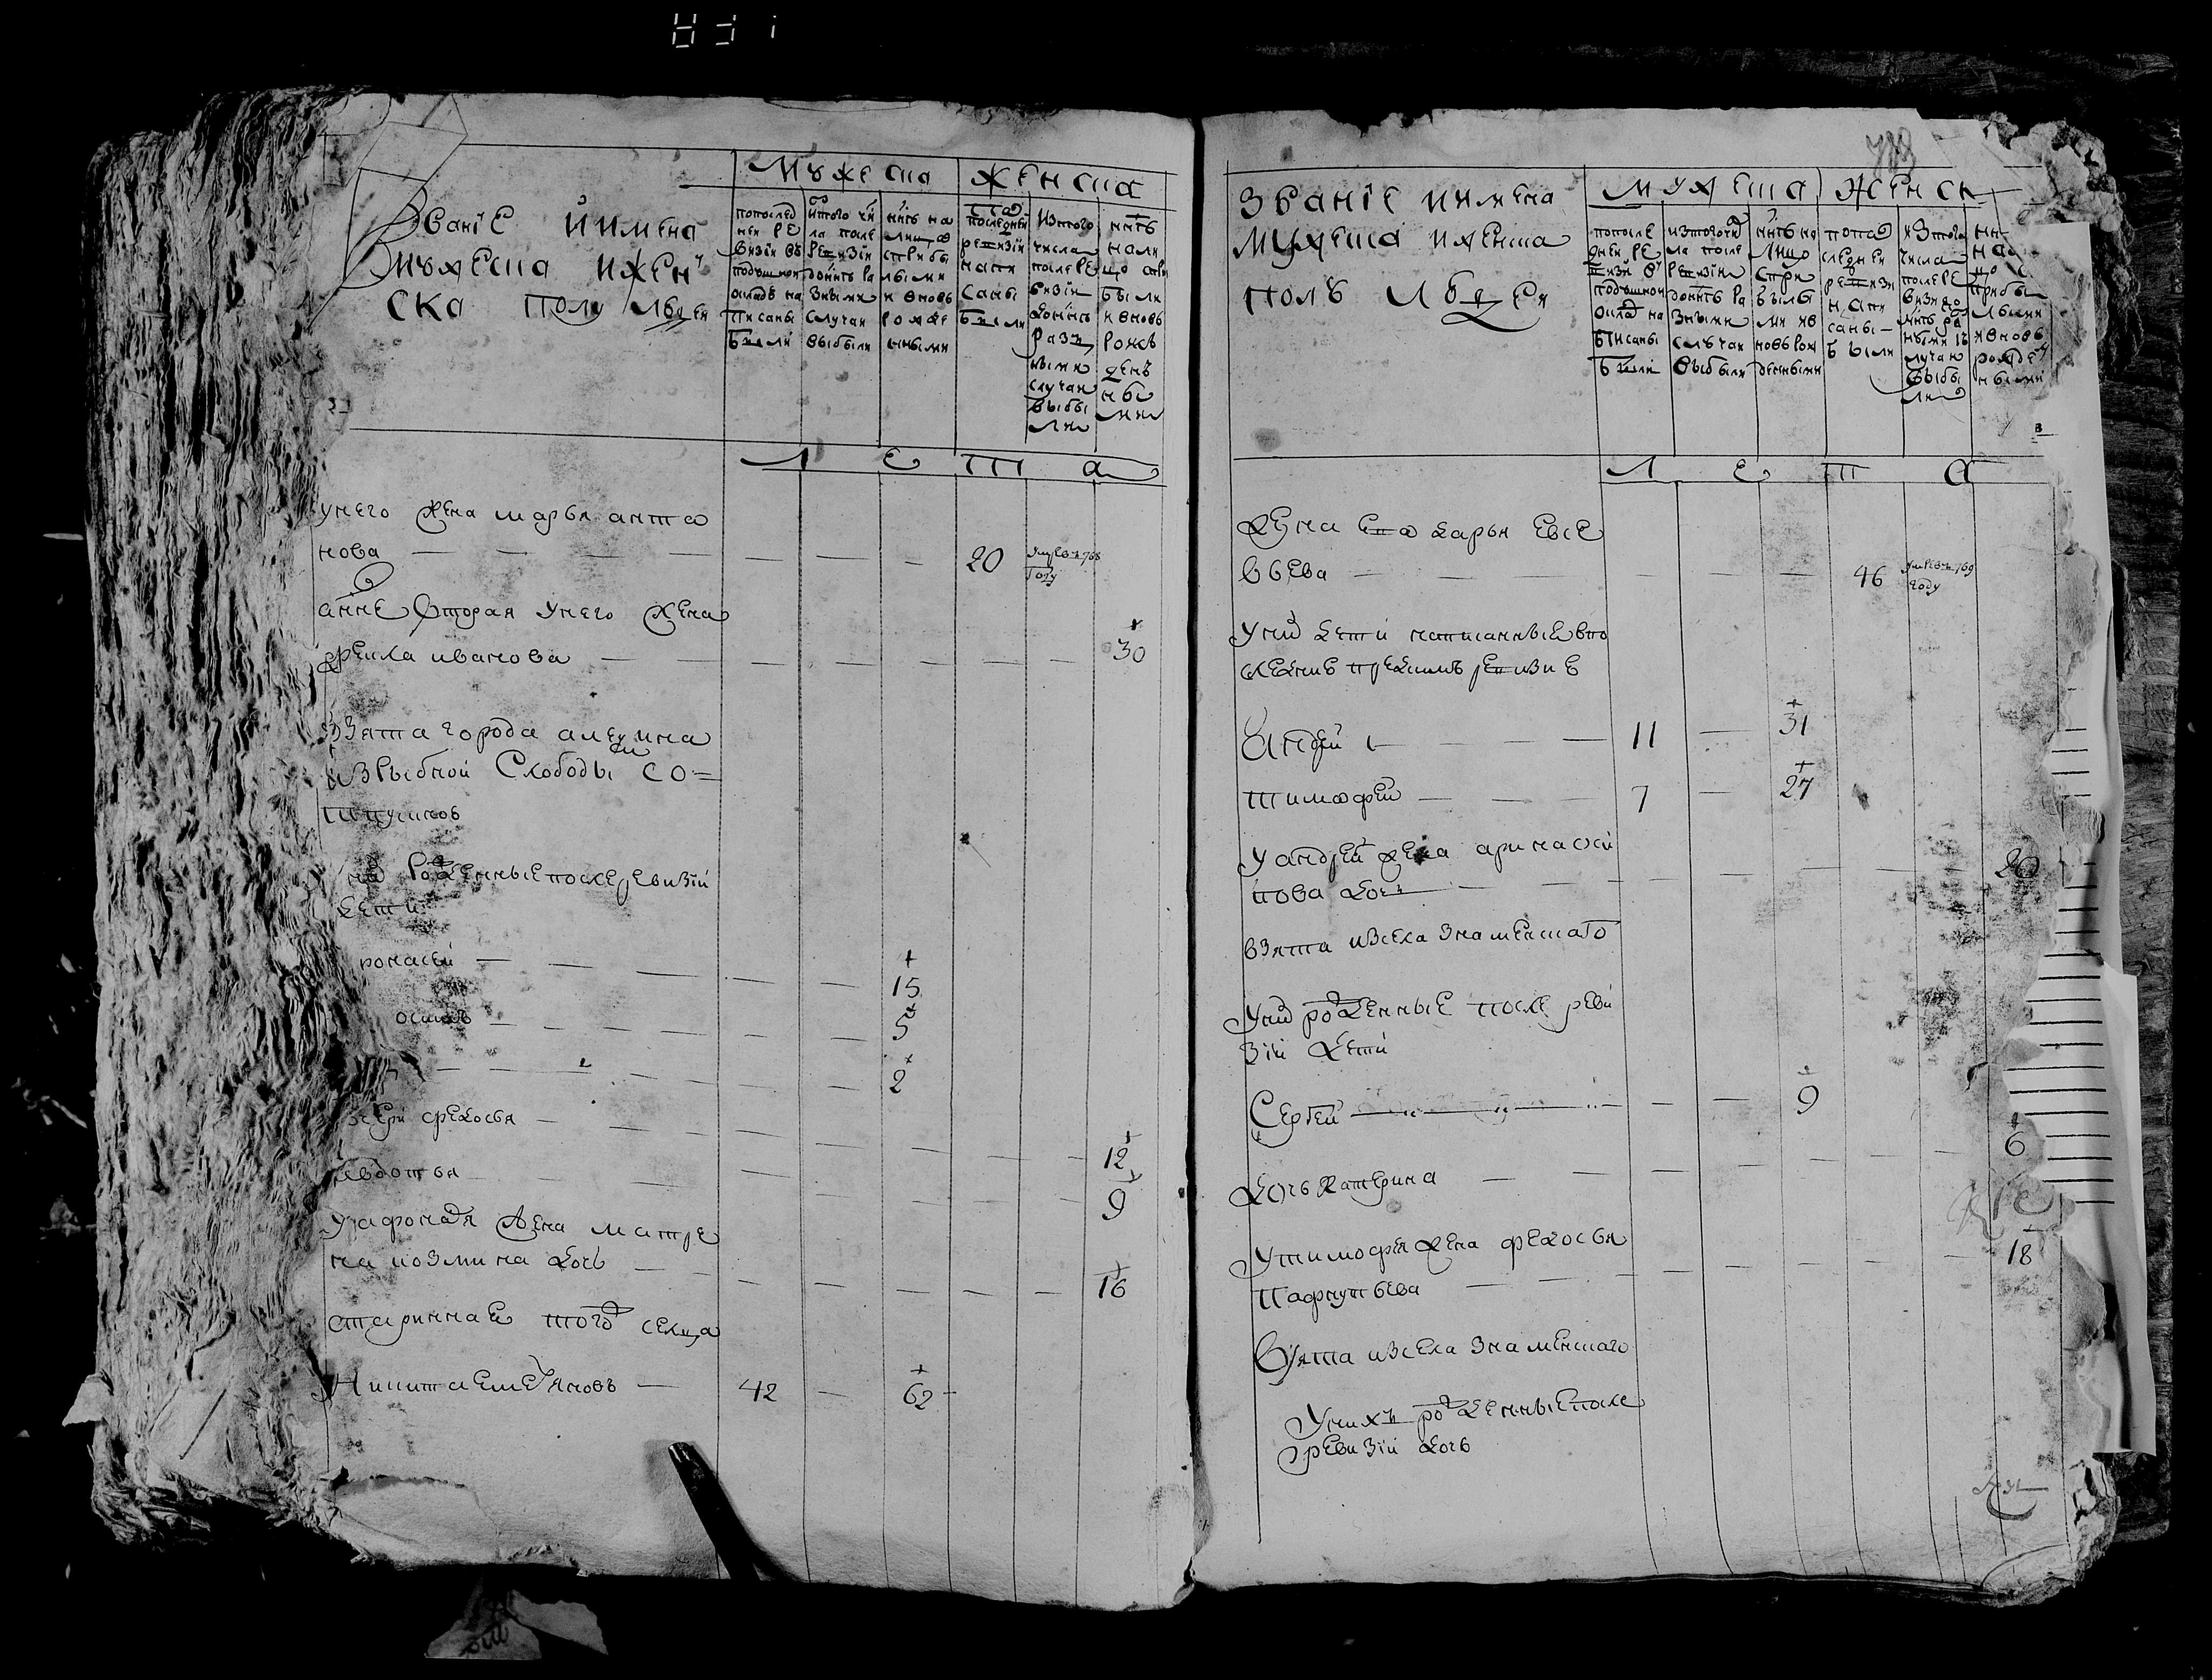 Званіе и имена
мужеска и жен
ска полу людей
Мужеска
Женска
попослед
ней ре
визіи въ
подушной
окладъ на
писаны
были
ис того чи
ла после
ревизіи
донне ра
зными
случаи
выбыли
ныне на
лицо
сприбы
лыми
и вновь
рожде
ными
по
последней
ревизіи
напи
саны
были
из того
числа
после ре
визіи
доныне
разъ
ными
случаи
выбы
ли
ныне
нали
цо спри
были
и вновь
рож
ден
ны
ми
Л е т а
у него жена марья анто
нова 20 умре въ 768
году
а ныне вторая у него жена
фекла иванова 30
взята города алексина
из рыбной слободы со
птушков
рожденные после ревизіи
дети
15
осипъ 5
2
дочери федосья 12
авдотья 9
у афонася жена матре
на козмина дочь 16
старинная того селца
Никита емельяновъ 42 62
Званіе и имена
мужеска и женска
полъ людей
Мужеска
Женск
попосле
дней ре
визіи в
подушной
оклад на
писаны
были
из того чи
ла после
ревизіи
донне ра
зными
случаи
выбыли
ныне на
лицо
с при
былы
ми и в
новь рож
денными
попо
следней
ревизи
напи
саны
были
из того
числа
после ре
визи до
ныне ра
ными с
лучаю
выбы
ли
прибы
лыми
и вновь
рожден
ными
Л е т а
жена ево дарья евсе
вьева 46 умре въ 769
году
у них дети написанные в по
следней пред сим ревизие
Андрей 11 31
тимофей 7 27
у андрея жена арина оси
пова дочь
взята из села знаменскаго
у них рожденные после реви
зіи дети
Сергей 9
дочь катерина 6
у тимофея жена федосья
пафнутьева 18
взята из села знаменскаго
у нихъ рожденные после
ревизіи дочь